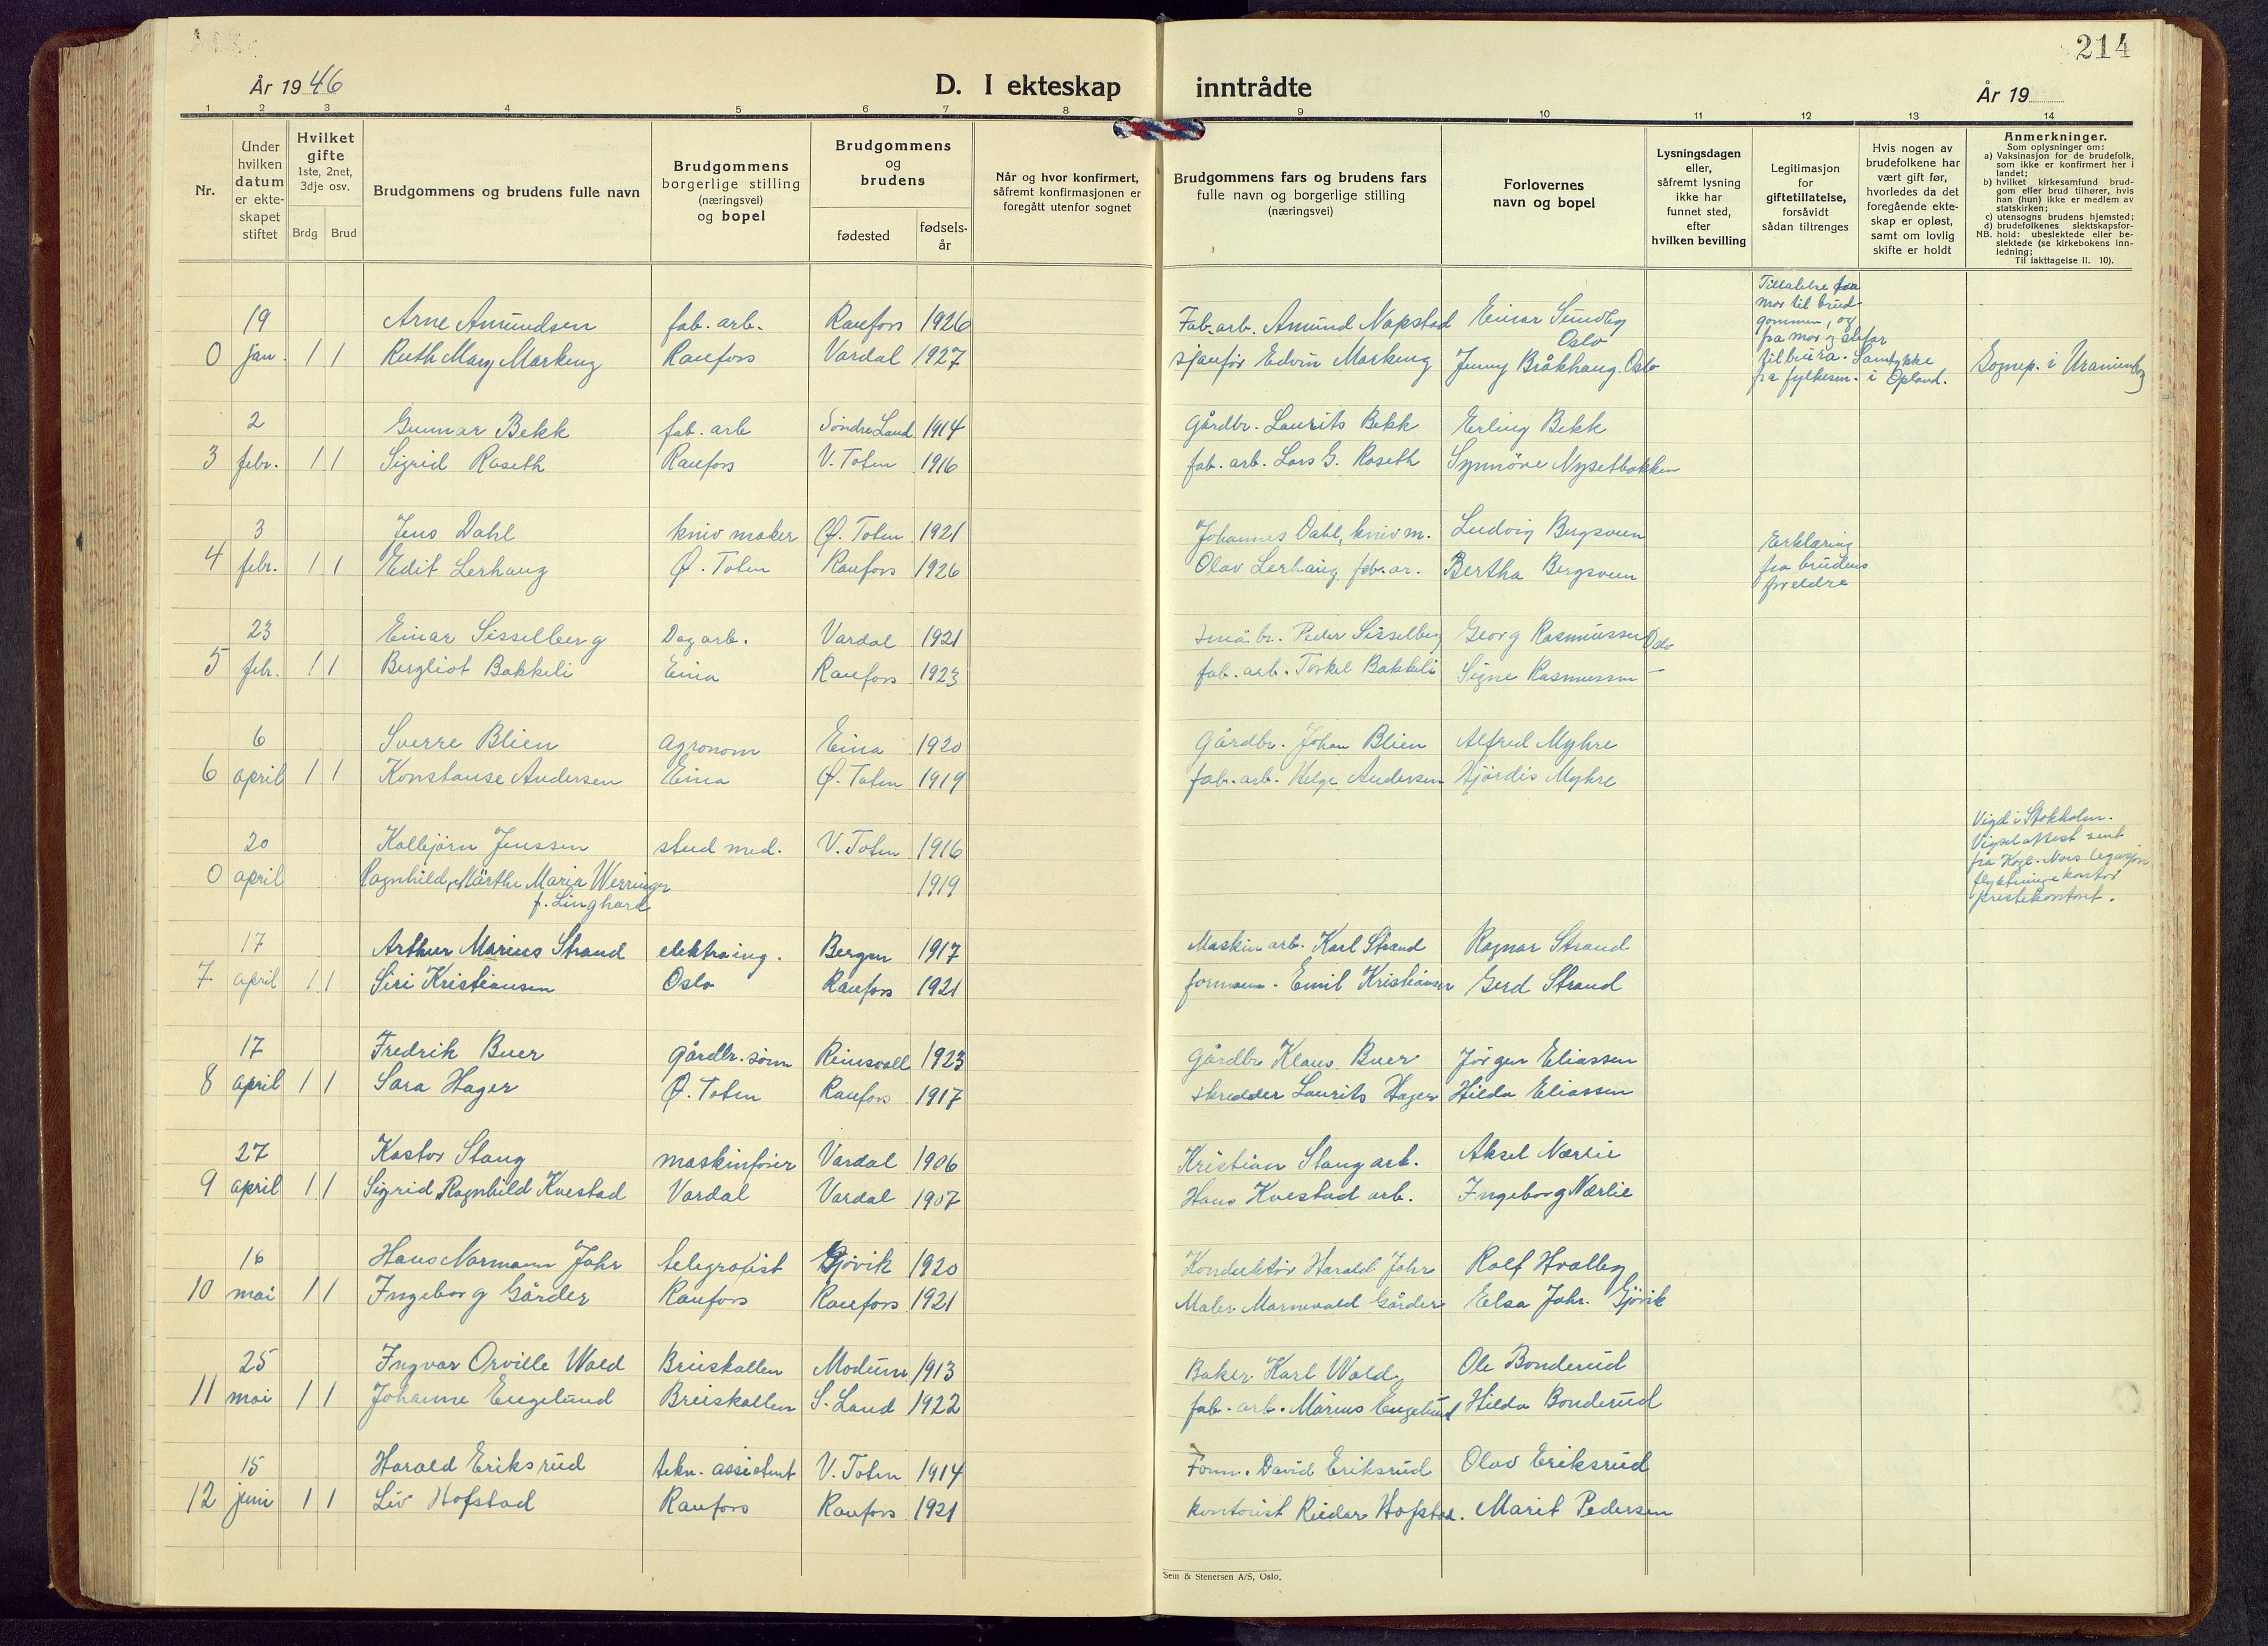 214
År 1946
D. I ekteskap inntrådte
År 19
1 2 3 4 5 6 7 8 9 10 11 12 13 14
Nr.
Under hvilken datum er ekteskapet stiftet
Hvilket gifte 1ste, 2net, 3dje osv.
Brdg Brud
Brudgommens og brudens fulle navn
Brudgommens borgerlige stilling (næringsvei) og bopel
Brudgommens og brudens
fødested
fødsels-år
Når og hvor konfirmert, såfremt konfirmasjonen er foregått utenfor sognet
Brudgommens fars og brudens fars fulle navn og borgerlige stilling (næringsvei)
Forlovernes navn og bopel
Lysningsdagen eller, såfremt lysning ikke har funnet sted, efter hvilken bevilling
Legitimasjon for giftetillatelse, forsåvidt sådan tiltrenges
Hvis nogen av brudefolkene har vært gift før, hvorledes da det foregående ekteskap er opløst, samt om lovlig skifte er holdt
Anmerkninger.
Som oplysninger om:
a) Vaksinasjon for de brudefolk, som ikke er konfirmert her i landet;
b) hvilket kirkesamfund brudgom eller brud tilhører, hvis han (hun) ikke er medlem av statskirken;
c) utensogns brudens hjemsted;
d) brudefolkenes slektskapsforhold: ubeslektede eller beslektede (se kirkebokens innledning;
NB.
Til iakttagelse II. 10).
19 Arne Amundsen fab. arb. Raufoss 1926 Fab. arb. Amund Napstad Einar Sundby Oslo
0 jan. 1 1 Ruth Mary Markeng Raufoss Vardal 1927 sjaufør Edvin Markeng Jenny Bråkhaug Oslo
Tillatelse fra
mor til brud-
gommen, og
fra mor og stefar
til brura. Samtykke
fra fylkesm. i Opland.
Sognep. i Uranienborg
2 Gunnar Bekk fab. arb Søndre Land 1914 Gårdbr. Laurits Bekk Erling Bekk
3 febr. 1 1 Sigrid Roseth Raufoss V. Toten 1916 fab. arb. Lars G. Roseth Synnøve Nysetbakken
3 Jens Dahl knivmaker Ø. Toten 1921 Johannes Dahl, knivm. Ludvig Bergsveen
4 febr. 1 1 Edit Lerhaug Ø. Toten Raufoss 1926 Olav Lerhaug, fab. ar. Bertha Bergsveen
Erklæring
fra brudens
foreldre
23 Einar Sisselberg Dagarb. Vardal 1921 Småbr. Peder Sisselberg Georg Rasmussen Oslo
5 febr. 1 1 Bergliot Bakkeli Eina Raufoss 1923 fab. arb. Torkel Bakkeli Signe Rasmussen —
6 Sverre Blien agronom Eina 1920 Gårdbr. Johan Blien Alfred Myhre
6 april 1 1 Konstanse Andersen Eina Ø. Toten 1919 fab. arb. Helge Andersen Hjördis Myhre
20 Kolbjørn Jenssen stud med. V. Toten 1916
0 april Ragnhild, Märtha Maria Werringer 1919
f. Linghard
Vigd i Stokholm.
Vigselattest sent
fra Kogl. Nors legasjon
flyktningekontor
prestekontoret.
17 Arthur Marius Strand elektroing. Bergen 1917 Maskinarb. Karl Strand Ragnar Strand
7 april 1 1 Siri Kristiansen Oslo Raufoss 1921 formann. Emil Kristiansen Gerd Strand
17 Fredrik Buer gårdbr. sønn Reinsvoll 1923 Gårdbr Klaus Buer Jörgen Eliassen
8 april 1 1 Sara Hager Ø. Toten Raufoss 1917 skredder Laurits Hager Hilda Eliassen
27 Kastor Stang maskinfører Vardal 1906 Kristian Stang arb. Aksel Nærlie
9 april 1 1 Sigrid Ragnhild Kvestad Vardal Vardal 1907 Hans Kvestad arb. Ingeborg Nærlie
16 Hans Normann Jahr telegrafist Gjøvik 1920 Konduktør Harald Jahr Rolf Hvalby
10 mai 1 1 Ingeborg Gårder Raufoss Raufoss 1921 Maler Gårder Elsa Jahr. Gjøvik
25 Ingvar Orville Wold Breiskallen Modum 1913 Baker Karl Wold. Ole Bonderud
11 mai 1 1 Johanne Engelund Breiskallen S. Land 1922 fab. arb. Marius Engelund Hilda Bonderud
15 Harald Eriksrud tekn. assistent V. Toten 1914 Form. David Eriksrud Olav Eriksrud
12 juni 1 1 Liv Hofstad Raufoss Raufoss 1921 kontorist Reidar Hofstad. Marit Pedersen
Sem & Stenersen A/S, Oslo.